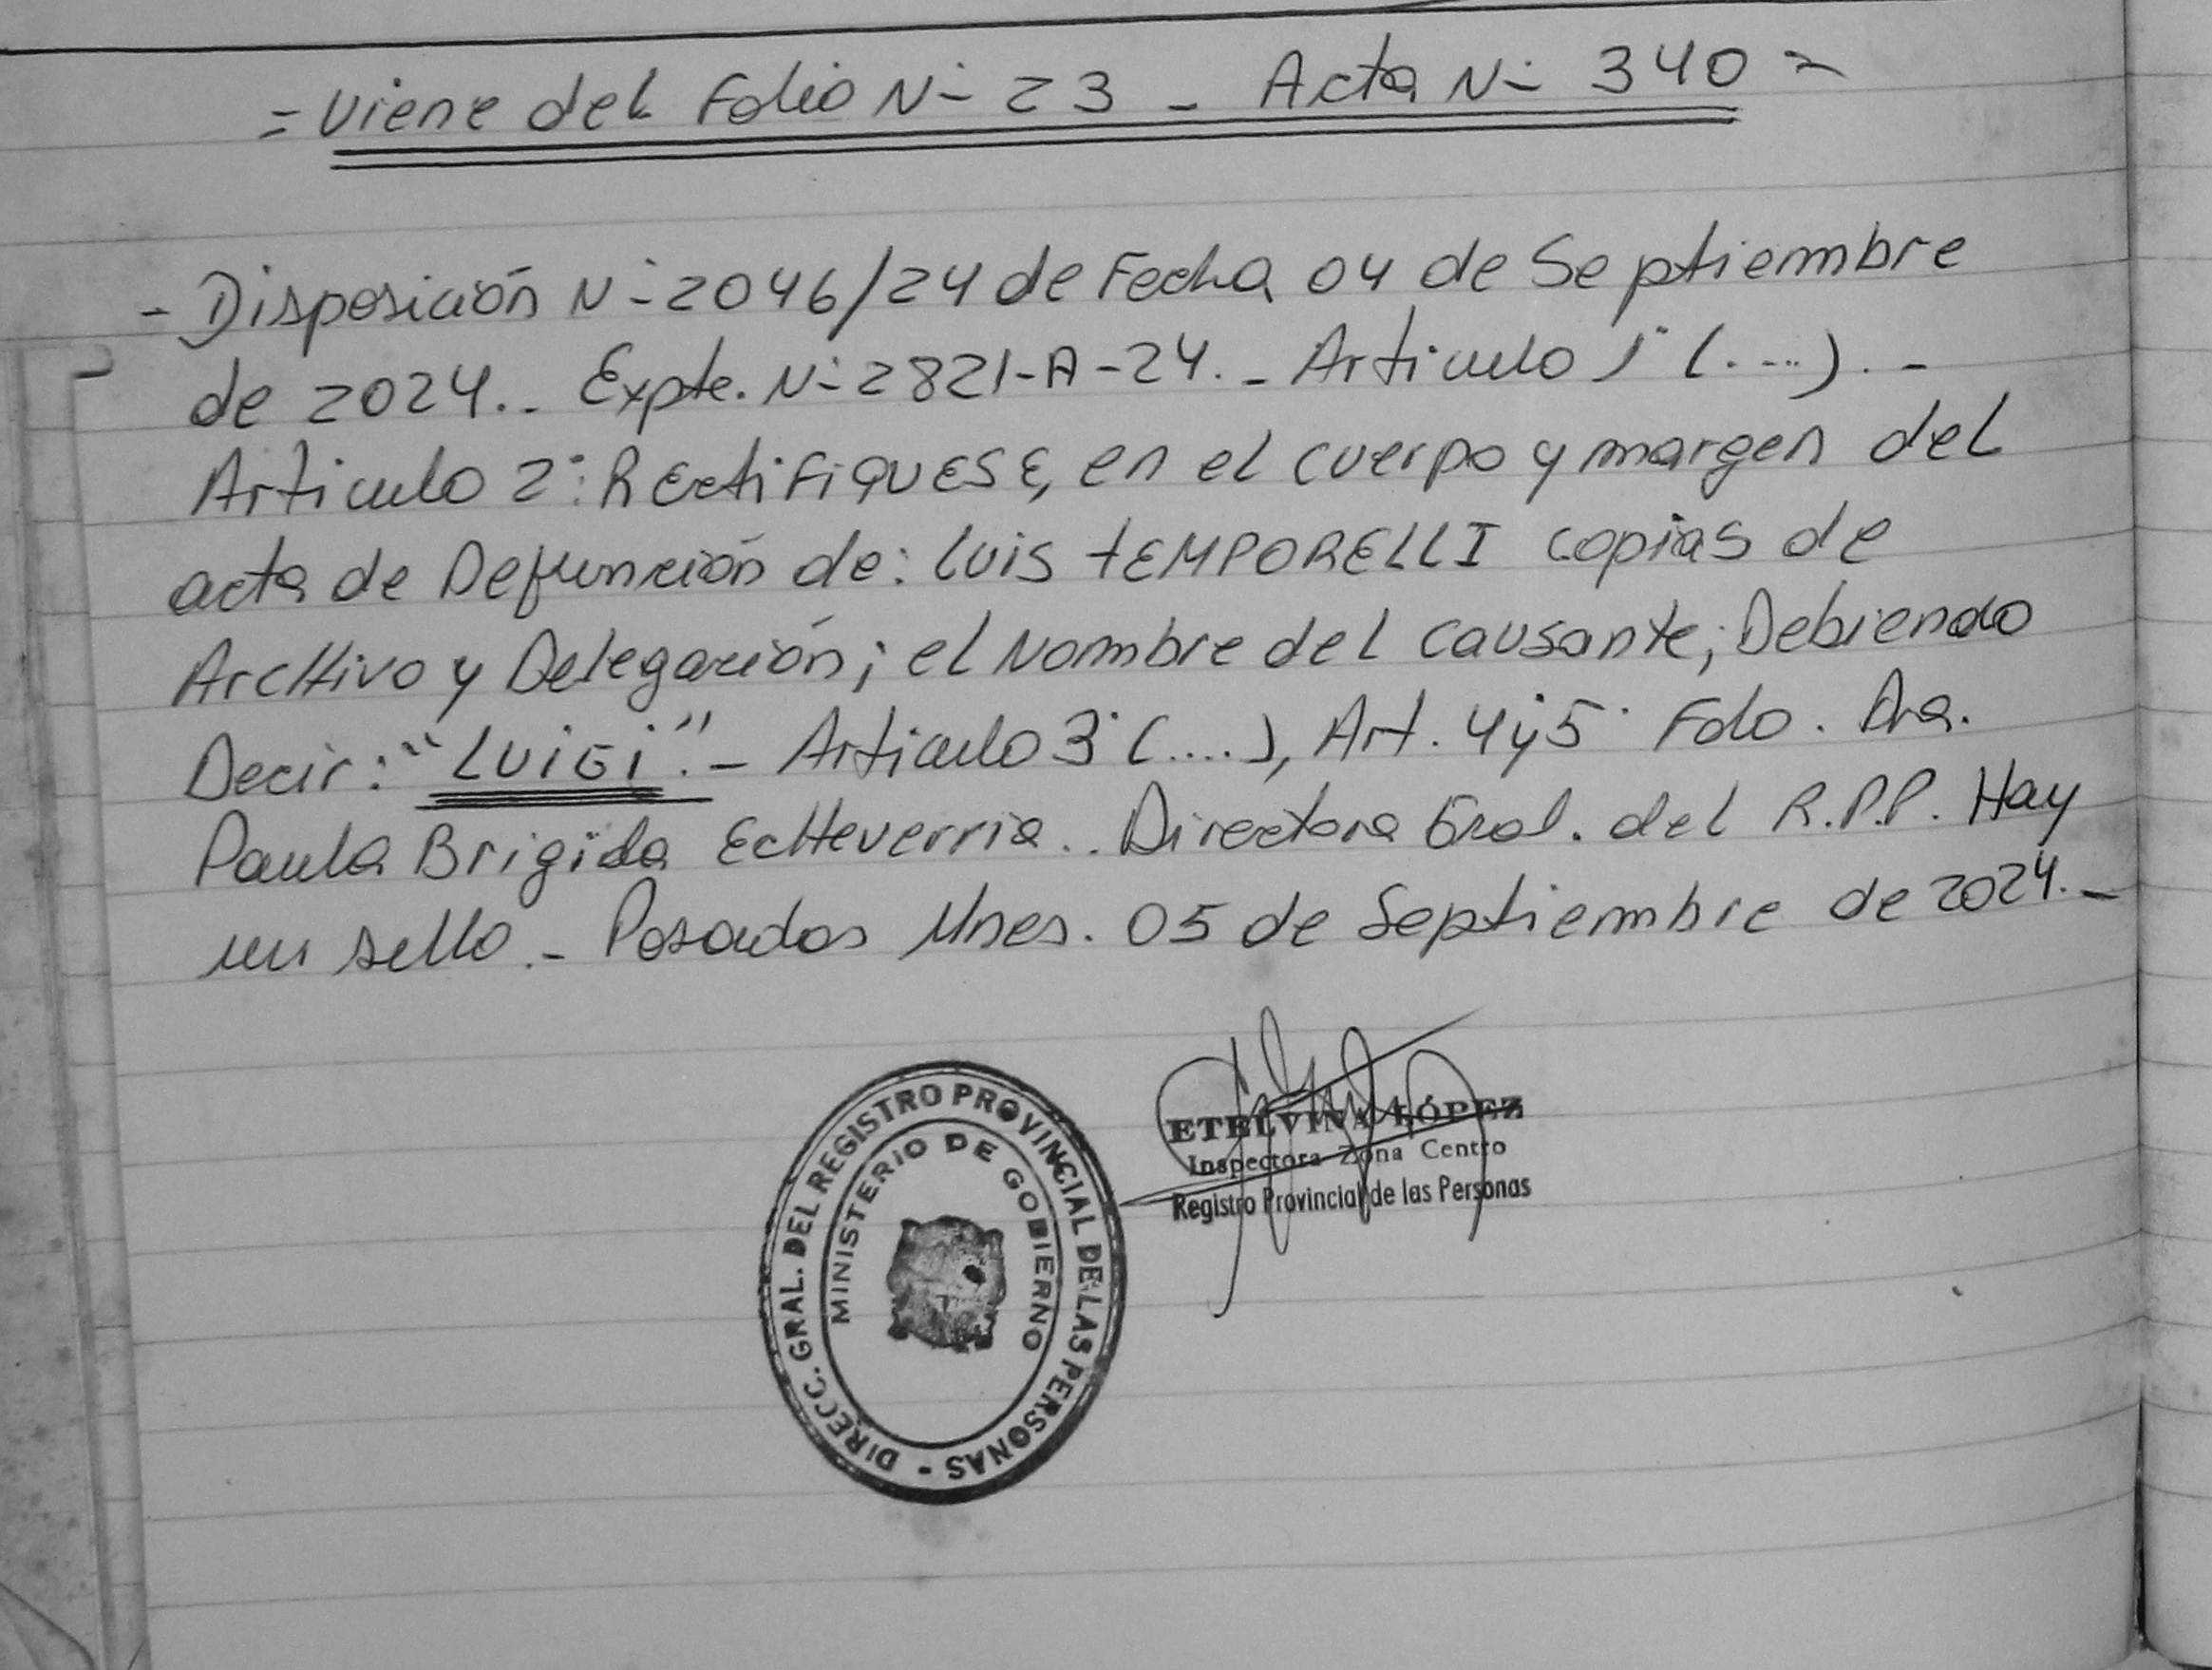 = Viene del Folio N- 23 - Acta N- 340 =
- Disposición N- 2046/24 de Fecha 04 de Septiembre
de 2024.- Expte. N- 2821-A-24.- Articulo 1° (....).-
Articulo 2°: RECtiFiQUESE, en el cuerpo y margen del
acta de Defunción de: Luis tEMPORELLI copias de
ArcHivo y Delegación; el Nombre del causante; Debiendo
Decir: "LUiGi".- Articulo 3° (....), Art. 4y5° Fdo. Dra.
Paula Brigida EcHeverria.. Directora Gral. del R.P.P. Hay
un sello.- Posadas Mnes. 05 de Septiembre de 2024.-
DIRECC. GRAL. DEL REGISTRO PROVINCIAL DE LAS PERSONAS -
MINISTERIO DE GOBIERNO
ETELVINA LÓPEZ
Inspectora Zona Centro
Registro Provincial de las Personas